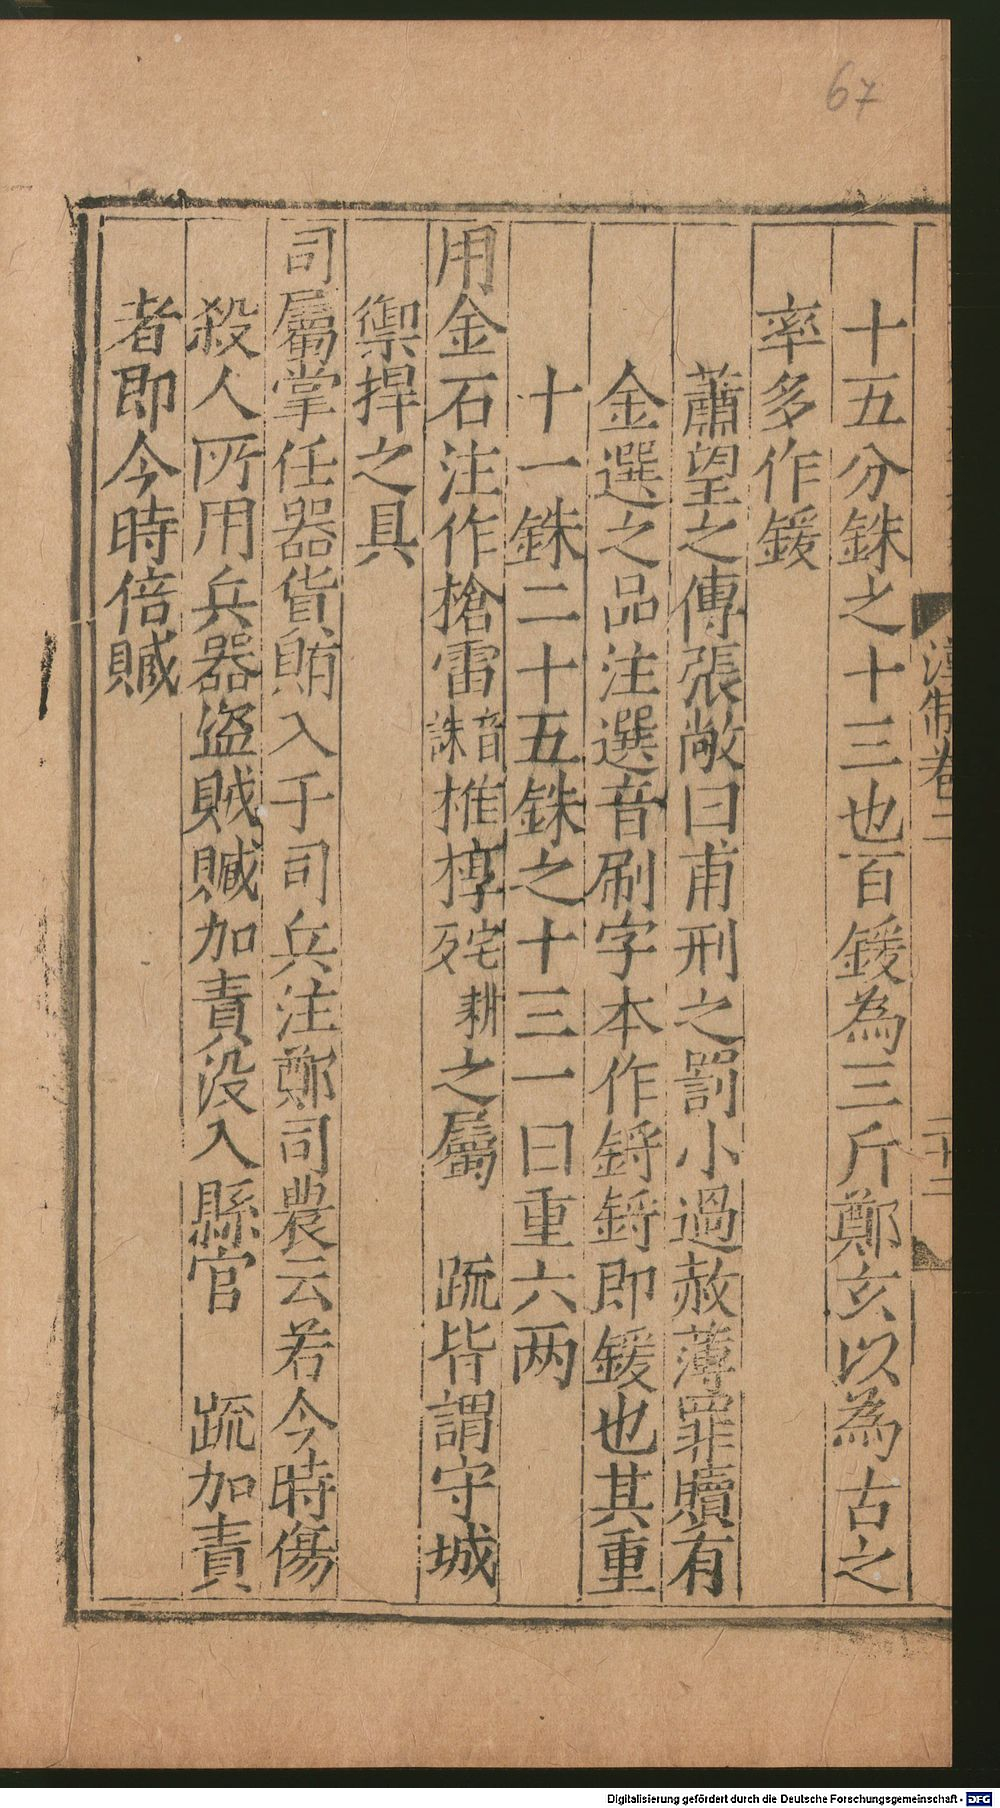 67
漢制卷二
二十二
十五分銖之十三也百鍰為三斤鄭玄以為古之
率多作鍰
蕭望之傳張敞曰甫刑之罰小過赦薄罪贖有
金選之品注選音刷字本作鋝鋝即鍰也其重
十一銖二十五銖之十三一曰重六两
用金石注作槍雷音誅椎椁宅耕之屬 䟽皆謂守城
禦捍之具
司屬掌任器貨賄入于司兵注鄭司農云若今時傷
殺人所用兵器盜賊贓加責没入縣官 䟽加責
者即今時倍贓
Digitalisierung gefördert durch die Deutsche Forschungsgemeinschaft - DFG